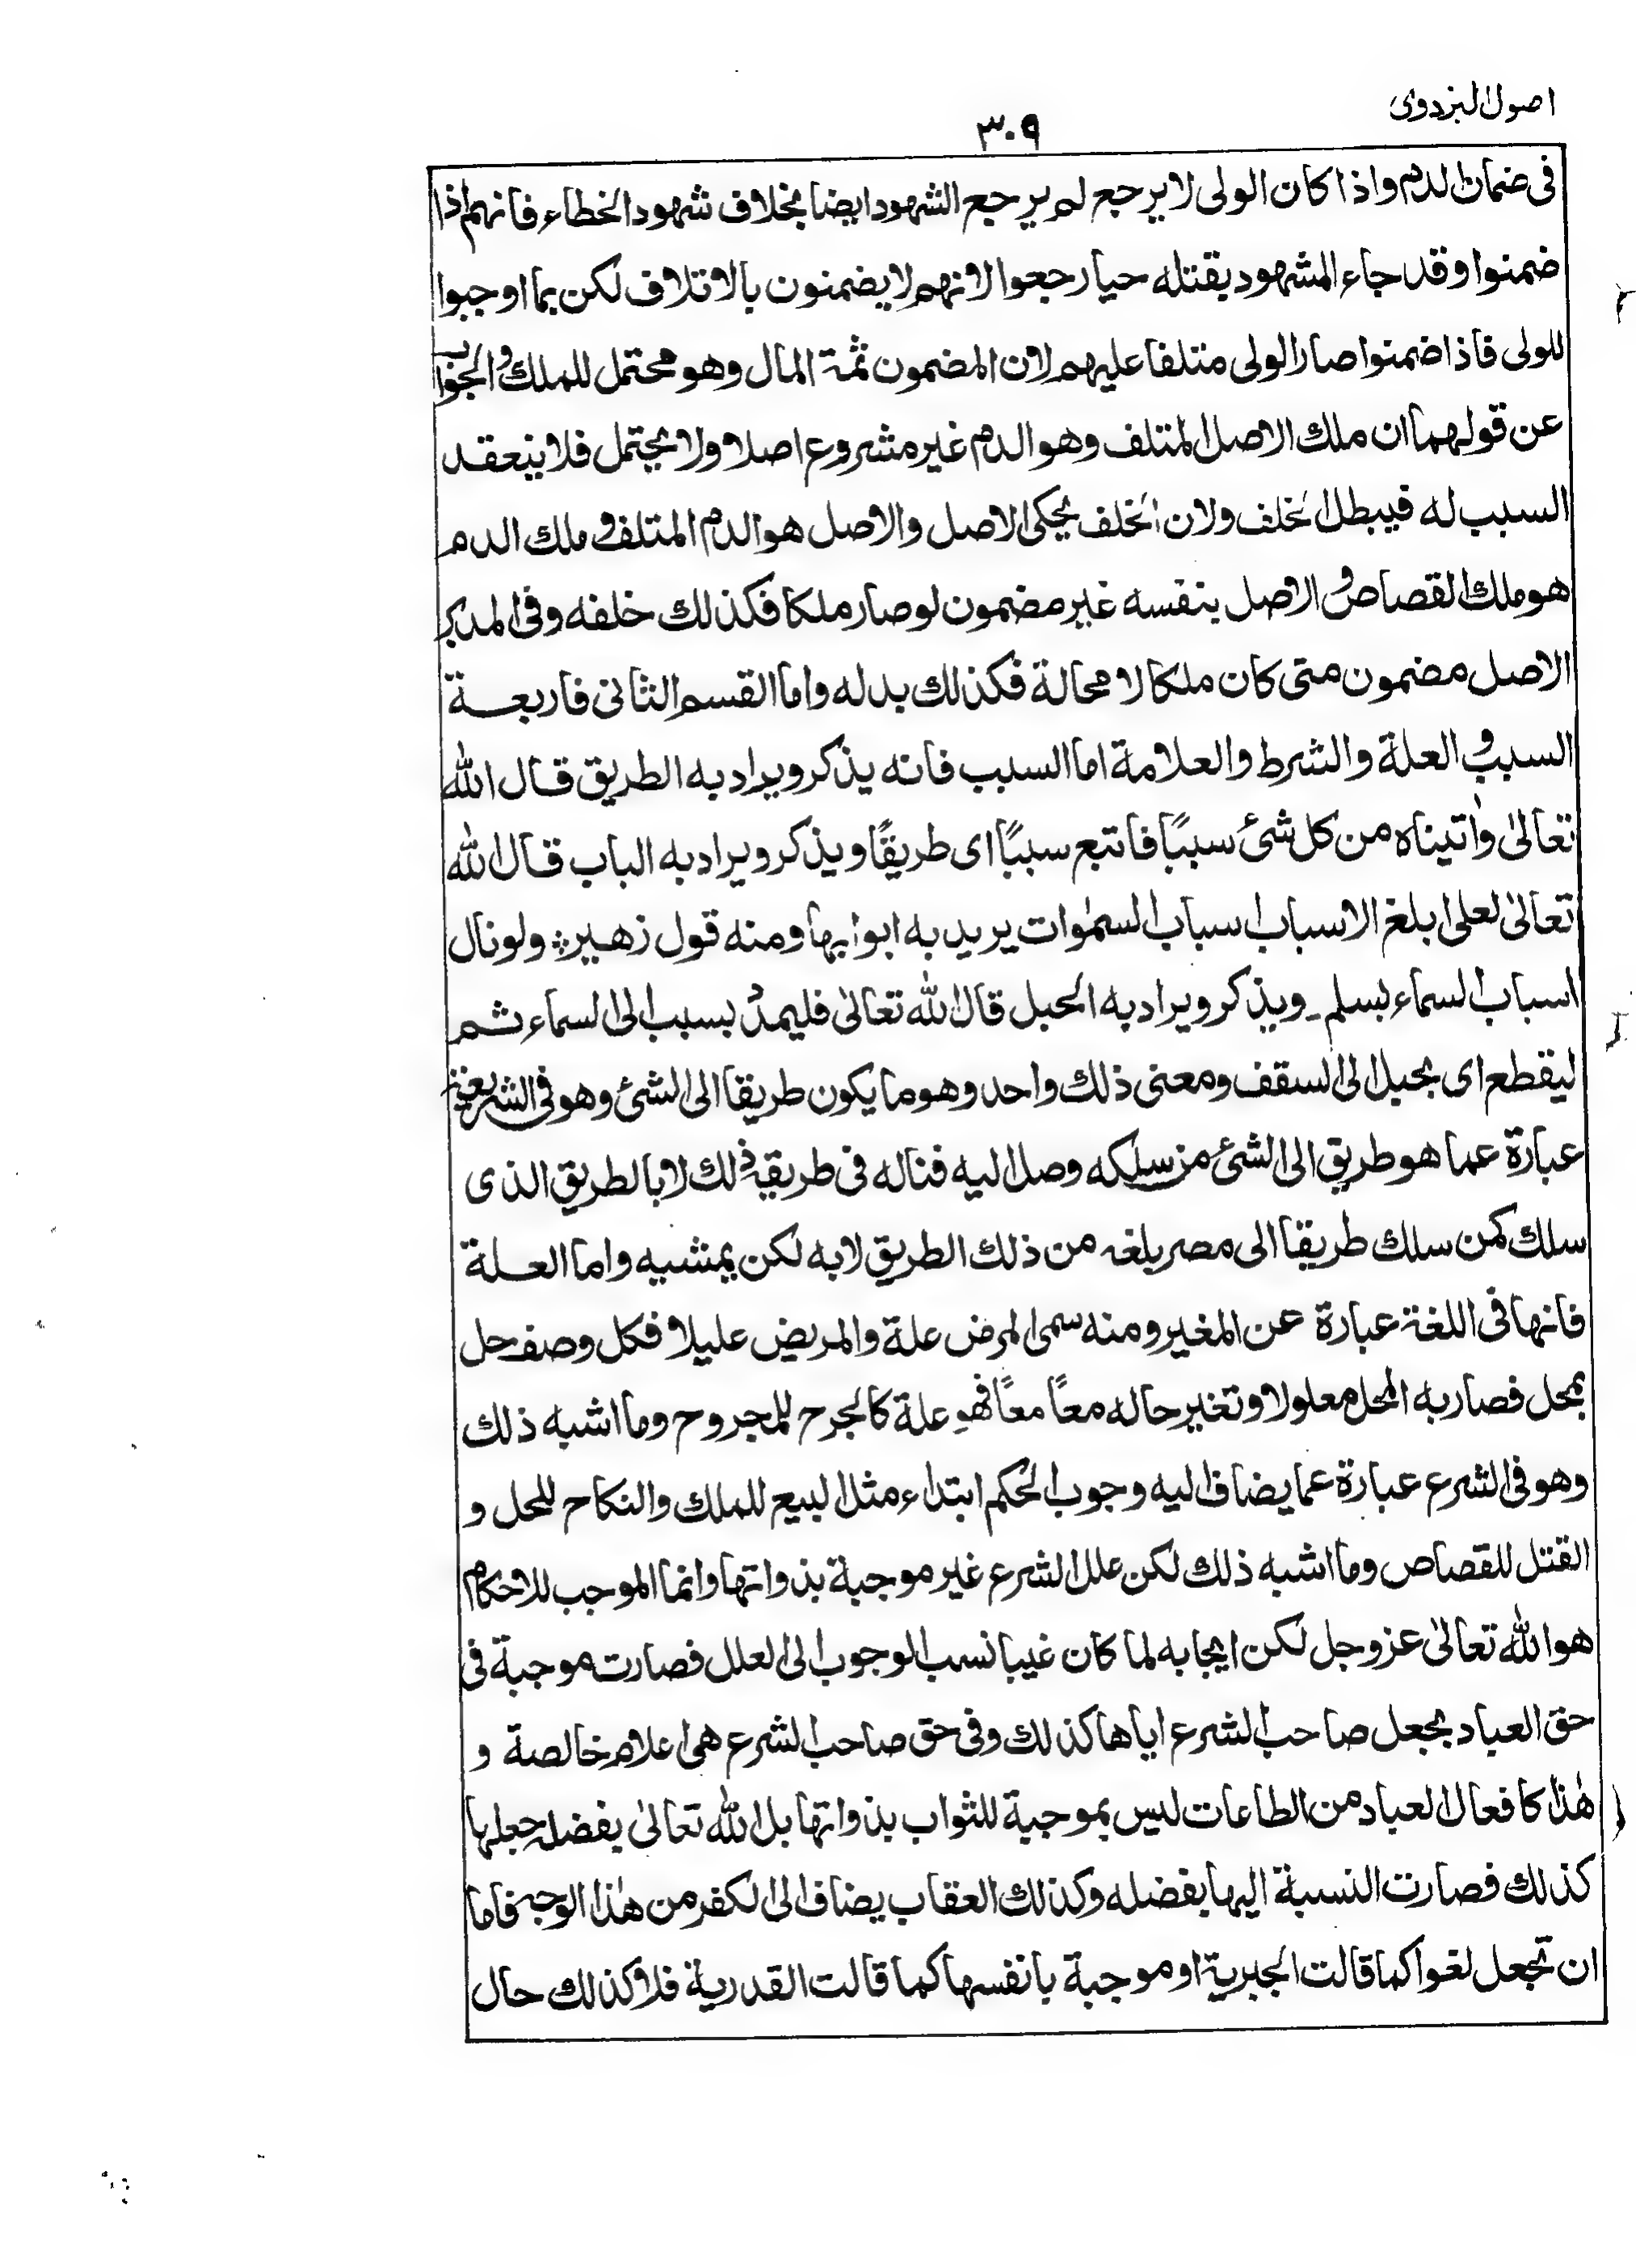 اصول البزدوی
۳۰۹
فی ضمان الدم واذا کان الولی لا یرجع لم یرجع الشهود ایضا بخلاف شهود الخطاء فانهم اذا
ضمنوا وقد جاء المشهود بقتله حیا رجعوا لانهم لا یضمنون بالاتلاف لکن بما اوجبوا
للولی فاذا ضمنوا صار الولی متلفا علیهم لان المضمون ثمة المال وهو محتمل للملک والجواب
عن قولهما ان ملک الاصل المتلف وهو الدم غیر مشروع اصلا ولا یحتمل فلا ینعقد
السبب له فیبطل الخلف ولان الخلف یحکی الاصل والاصل هو الدم المتلف و ملک الدم
هو ملک القصاص والاصل بنفسه غیر مضمون لو صار ملکا فکذلک خلفه وفی المدبر
الاصل مضمون متی کان ملکا لا محالة فکذلک بدله واما القسم الثانی فاربعــة
السبب و العلة والشرط والعلامة اما السبب فانه یذکر ویراد به الطریق قال الله
تعالیٰ واٰتیناه من کل شیٔ سببًا فاتبع سببًا ای طریقًا ویذکر ویراد به الباب قال الله
تعالیٰ لعلی ابلغ الاسباب اسباب السمٰوات یرید به ابوابها ومنه قول زهیر ؞ ولو نال
اسباب السماء بسلم ـ ویذکر ویراد به الحبل قال الله تعالیٰ فلیمدُد بسبب الی السماء ثم
لیقطع ای بحبل الی السقف ومعنی ذلک واحد وهو ما یکون طریقا الی الشیٔ وهو فی الشریعة
عبارة عما هو طریق الی الشیٔ من سلکه وصل الیه فناله فی طریقه ذلک لا بالطریق الذی
سلک کمن سلک طریقا الی مصر بلغه من ذلک الطریق لا به لکن بمشیه واما العلة
فانها فی اللغة عبارة عن المغیر ومنه سمی المرض علة والمریض علیلا فکل وصف حل
بمحل فصار به المحل معلولا وتغیر حاله معًا معًا فهو علة کالجرح للمجروح وما اشبه ذلک
وهو فی الشرع عبارة عما یضاف الیه وجوب الحکم ابتداء مثل البیع للملک والنکاح للحل و
القتل للقصاص وما اشبه ذلک لکن علل الشرع غیر موجبة بذواتها وانما الموجب للاحکام
هو الله تعالیٰ عزوجل لکن ایجابه لما کان غیبا نسب الوجوب الی العلل فصارت موجبة فی
حق العباد بجعل صاحب الشرع ایاها کذلک وفی حق صاحب الشرع هی اعلام خالصة و
هٰذا کافعال العباد من الطاعات لیس بموجبة للثواب بذواتها بل الله تعالیٰ بفضله جعلها
کذلک فصارت النسبة الیها بفضله وکذلک العقاب یضاف الی الکفر من هٰذا الوجه فاما
ان تجعل لغوا کما قالت الجبریة او موجبة بانفسها کما قالت القدریة فلا وکذلک حال